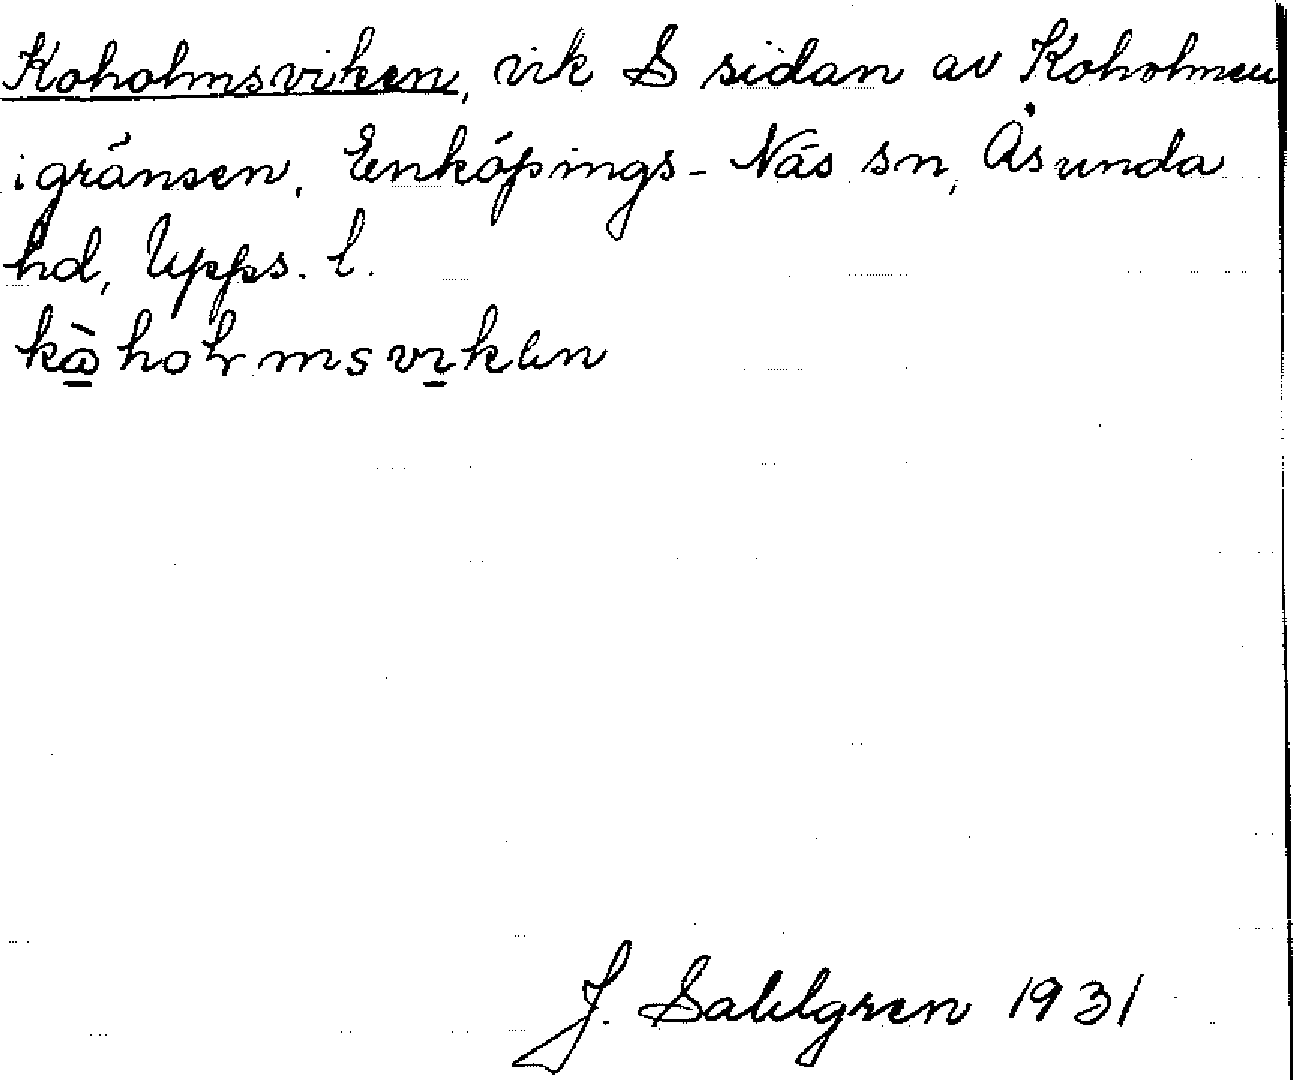 Koholmsviken, vik S sidan av Koholmen
i gränsen, Enköpings-Näs sn, Åsunda
hd, Upps. l.
J. Sahlgren 1931